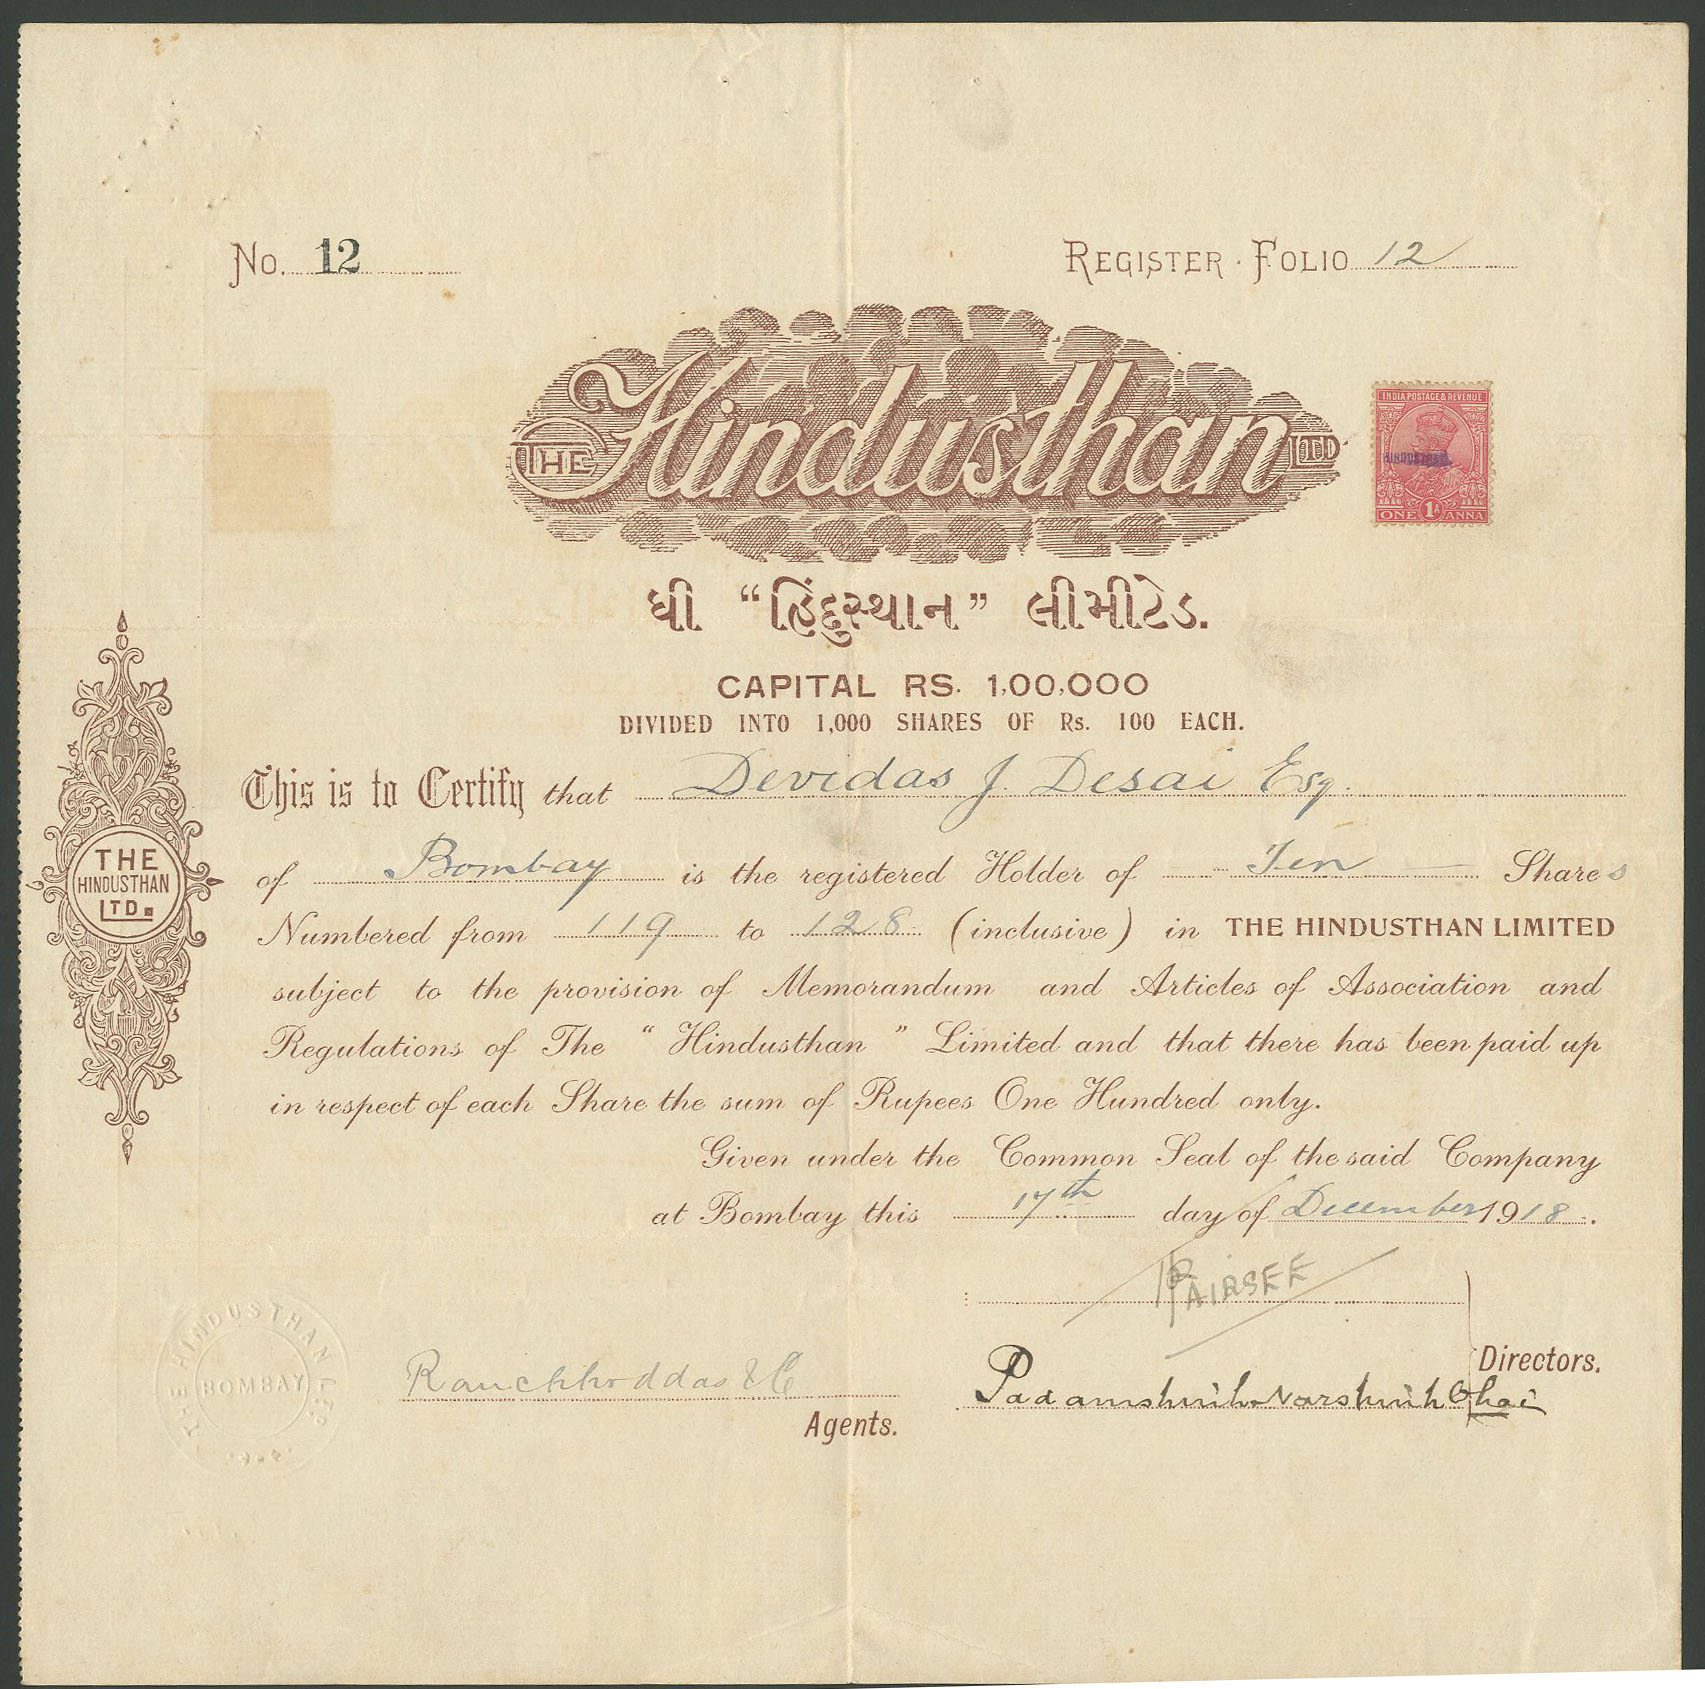 No. 12
REGISTER FOLIO 12
THE Hindusthan LTD
INDIA POSTAGE & REVENUE
HINDUSTHAN
ONE 1A ANNA
ધી “હિંદુસ્થાન” લીમીટેડ.
CAPITAL RS. 1,00,000
DIVIDED INTO 1,000 SHARES OF Rs. 100 EACH.
This is to Certify that Devidas J. Desai Esq.
of Bombay is the registered Holder of Ten Shares
Numbered from 119 to 128 (inclusive) in THE HINDUSTHAN LIMITED
subject to the provision of Memorandum and Articles of Association and
Regulations of The “Hindusthan” Limited and that there has been paid up
in respect of each Share the sum of Rupees One Hundred only.
Given under the Common Seal of the said Company
at Bombay this 17th day of December 1918.
THE
HINDUSTHAN
LTD.
PAIRSEE
Directors.
Ranchhoddas & Co
Agents.
THE HINDUSTHAN LTD.
BOMBAY